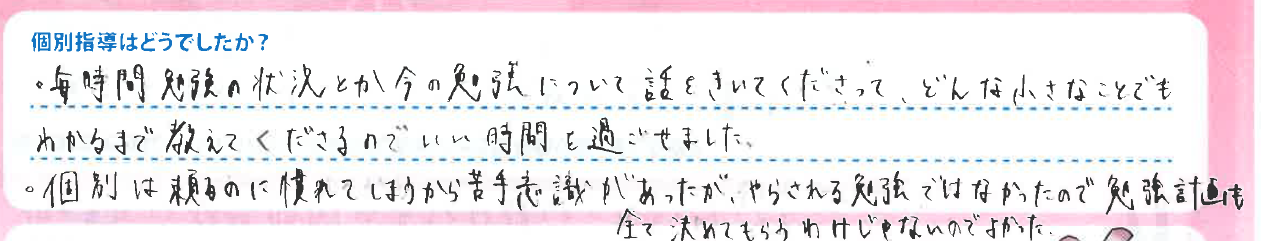 個別指導はどうでしたか？
・毎時間勉強の状況とか今の勉強について話をきいてくださって、どんな小さなことでも
わかるまで教えてくださるのでいい時間を過ごせました。
・個別は頼るのに慣れてしまうから苦手意識があったが、やらされる勉強ではなかったので勉強計画も
全て決めてもらうわけじゃないのでよかった。